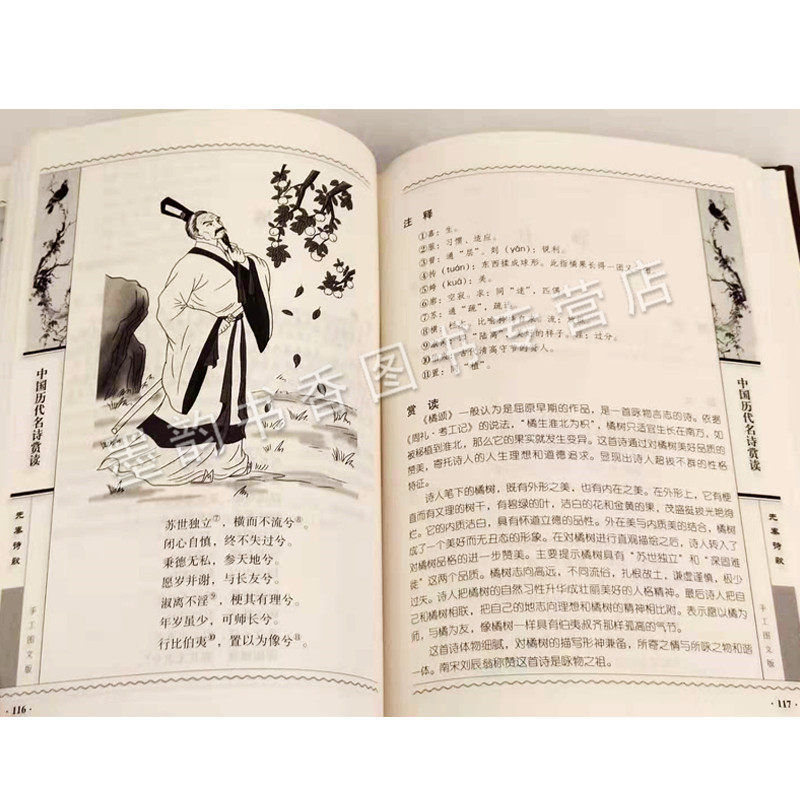 中国历代名诗赏读
先秦诗歌
手工图文版
苏世独立⑦，横而不流兮⑧。
闭心自慎，终不失过兮。
秉德无私，参天地兮。
愿岁并谢，与长友兮。
淑离不淫⑨，梗其有理兮。
年岁虽少，可师长兮。
行比伯夷⑩，置以为像兮⑪。
·116·
注 释
①嘉：生。
②服：习惯、适应。
③曾：通“层”。剡（yǎn）：锐利。
④抟（tuán）：东西揉成球形。此指橘果长得一团
⑤姱（kuā）：美。
⑥廓：空寂。求：同“逑”，匹偶
⑦苏：通“疏”，疏
⑧横
样子。淫：过分。
⑩
古代清高守节的
人。
⑪置：“植”。
赏 读
《橘颂》一般认为是屈原早期的作品，是一首咏物言志的诗。依据
《周礼·考工记》的说法，“橘生淮北为枳”，橘树只适宜生长在南方，如
被移植到淮北，那么它的果实就发生变异。这首诗通过对橘树美好品质的
赞美，寄托诗人的人生理想和道德追求。显现出诗人超拔不群的性格
特征。
诗人笔下的橘树，既有外形之美，也有内在之美。在外形上，它有梗
直而有文理的树干，有碧绿的叶，洁白的花和金黄的果，茂盛挺拔光艳绚
烂。它的内质洁白，具有怀道立德的品性。外在美与内质美的结合，橘树
成了一个美好而无丑态的形象。在对橘树进行直观描绘之后，诗人转入了
对橘树品格的进一步赞美。主要提示橘树具有“苏世独立”和“深固难
徙”这两个品质。橘树志向高远，不同流俗，扎根故土，谦虚谨慎，极少
过失。诗人把橘树的自然习性升华成壮丽美好的人格精神。最后诗人把自
己和橘树相联，把自己的地志向理想和橘树的精神相比附。表示愿以橘为
师，与橘为友，像橘树一样具有伯夷叔齐那样孤高的气节。
这首诗体物细腻，对橘树的描写形神兼备，所寄之情与所咏之物和谐
一体。南宋刘辰翁称赞这首诗是咏物之祖。
中国历代名诗赏读
先秦诗歌
手工图文版
·117·
韵书香图书专营店